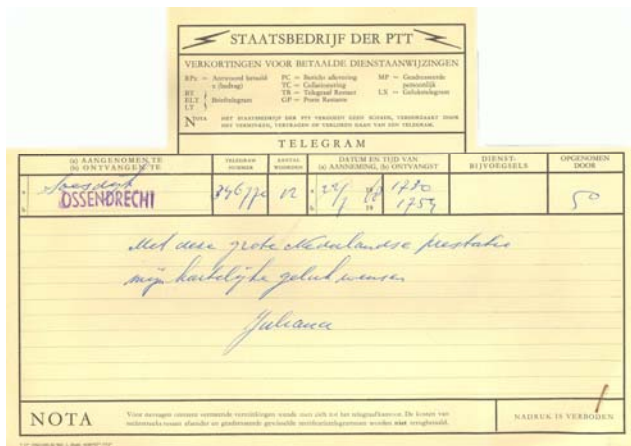 STAATSBEDRIJF DER PTT
VERKORTINGEN VOOR BETAALDE DIENSTAANWIJZINGEN
RPx = Antwoord betaald x (bedrag)
BT
ELT
LT
Brieftelegram
PC = Bericht aflevering
TC = Collationering
TR = Telegraaf Restant
GP = Poste Restante
MP = Geadresseerde persoonlijk
LX = Gelukstelegram
NOTA HET STAATSBEDRIJF DER PTT VERGOEDT GEEN SCHADE, VEROORZAAKT DOOR
HET VERMINKEN, VERTRAGEN OF VERLOREN GAAN VAN EEN TELEGRAM.
TELEGRAM
(a) AANGENOMEN TE
(b) ONTVANGEN TE
TELEGRAM NUMMER
AANTAL WOORDEN
DATUM EN TIJD VAN
(a) AANNEMING, (b) ONTVANGST
DIENST-
BIJVOEGSELS
OPGENOMEN DOOR
a Soesdijk
b OSSENDRECHT
12
a 1730
b 19 1754
50
Met deze grote Nederlandse prestatie
mijn hartelijke gelukwensen
Juliana
NOTA
Voor navragen omtrent vermoede verminkingen wende men zich tot het telegraafkantoor. De kosten van
niet terugbetaald.
NADRUK IS VERBODEN